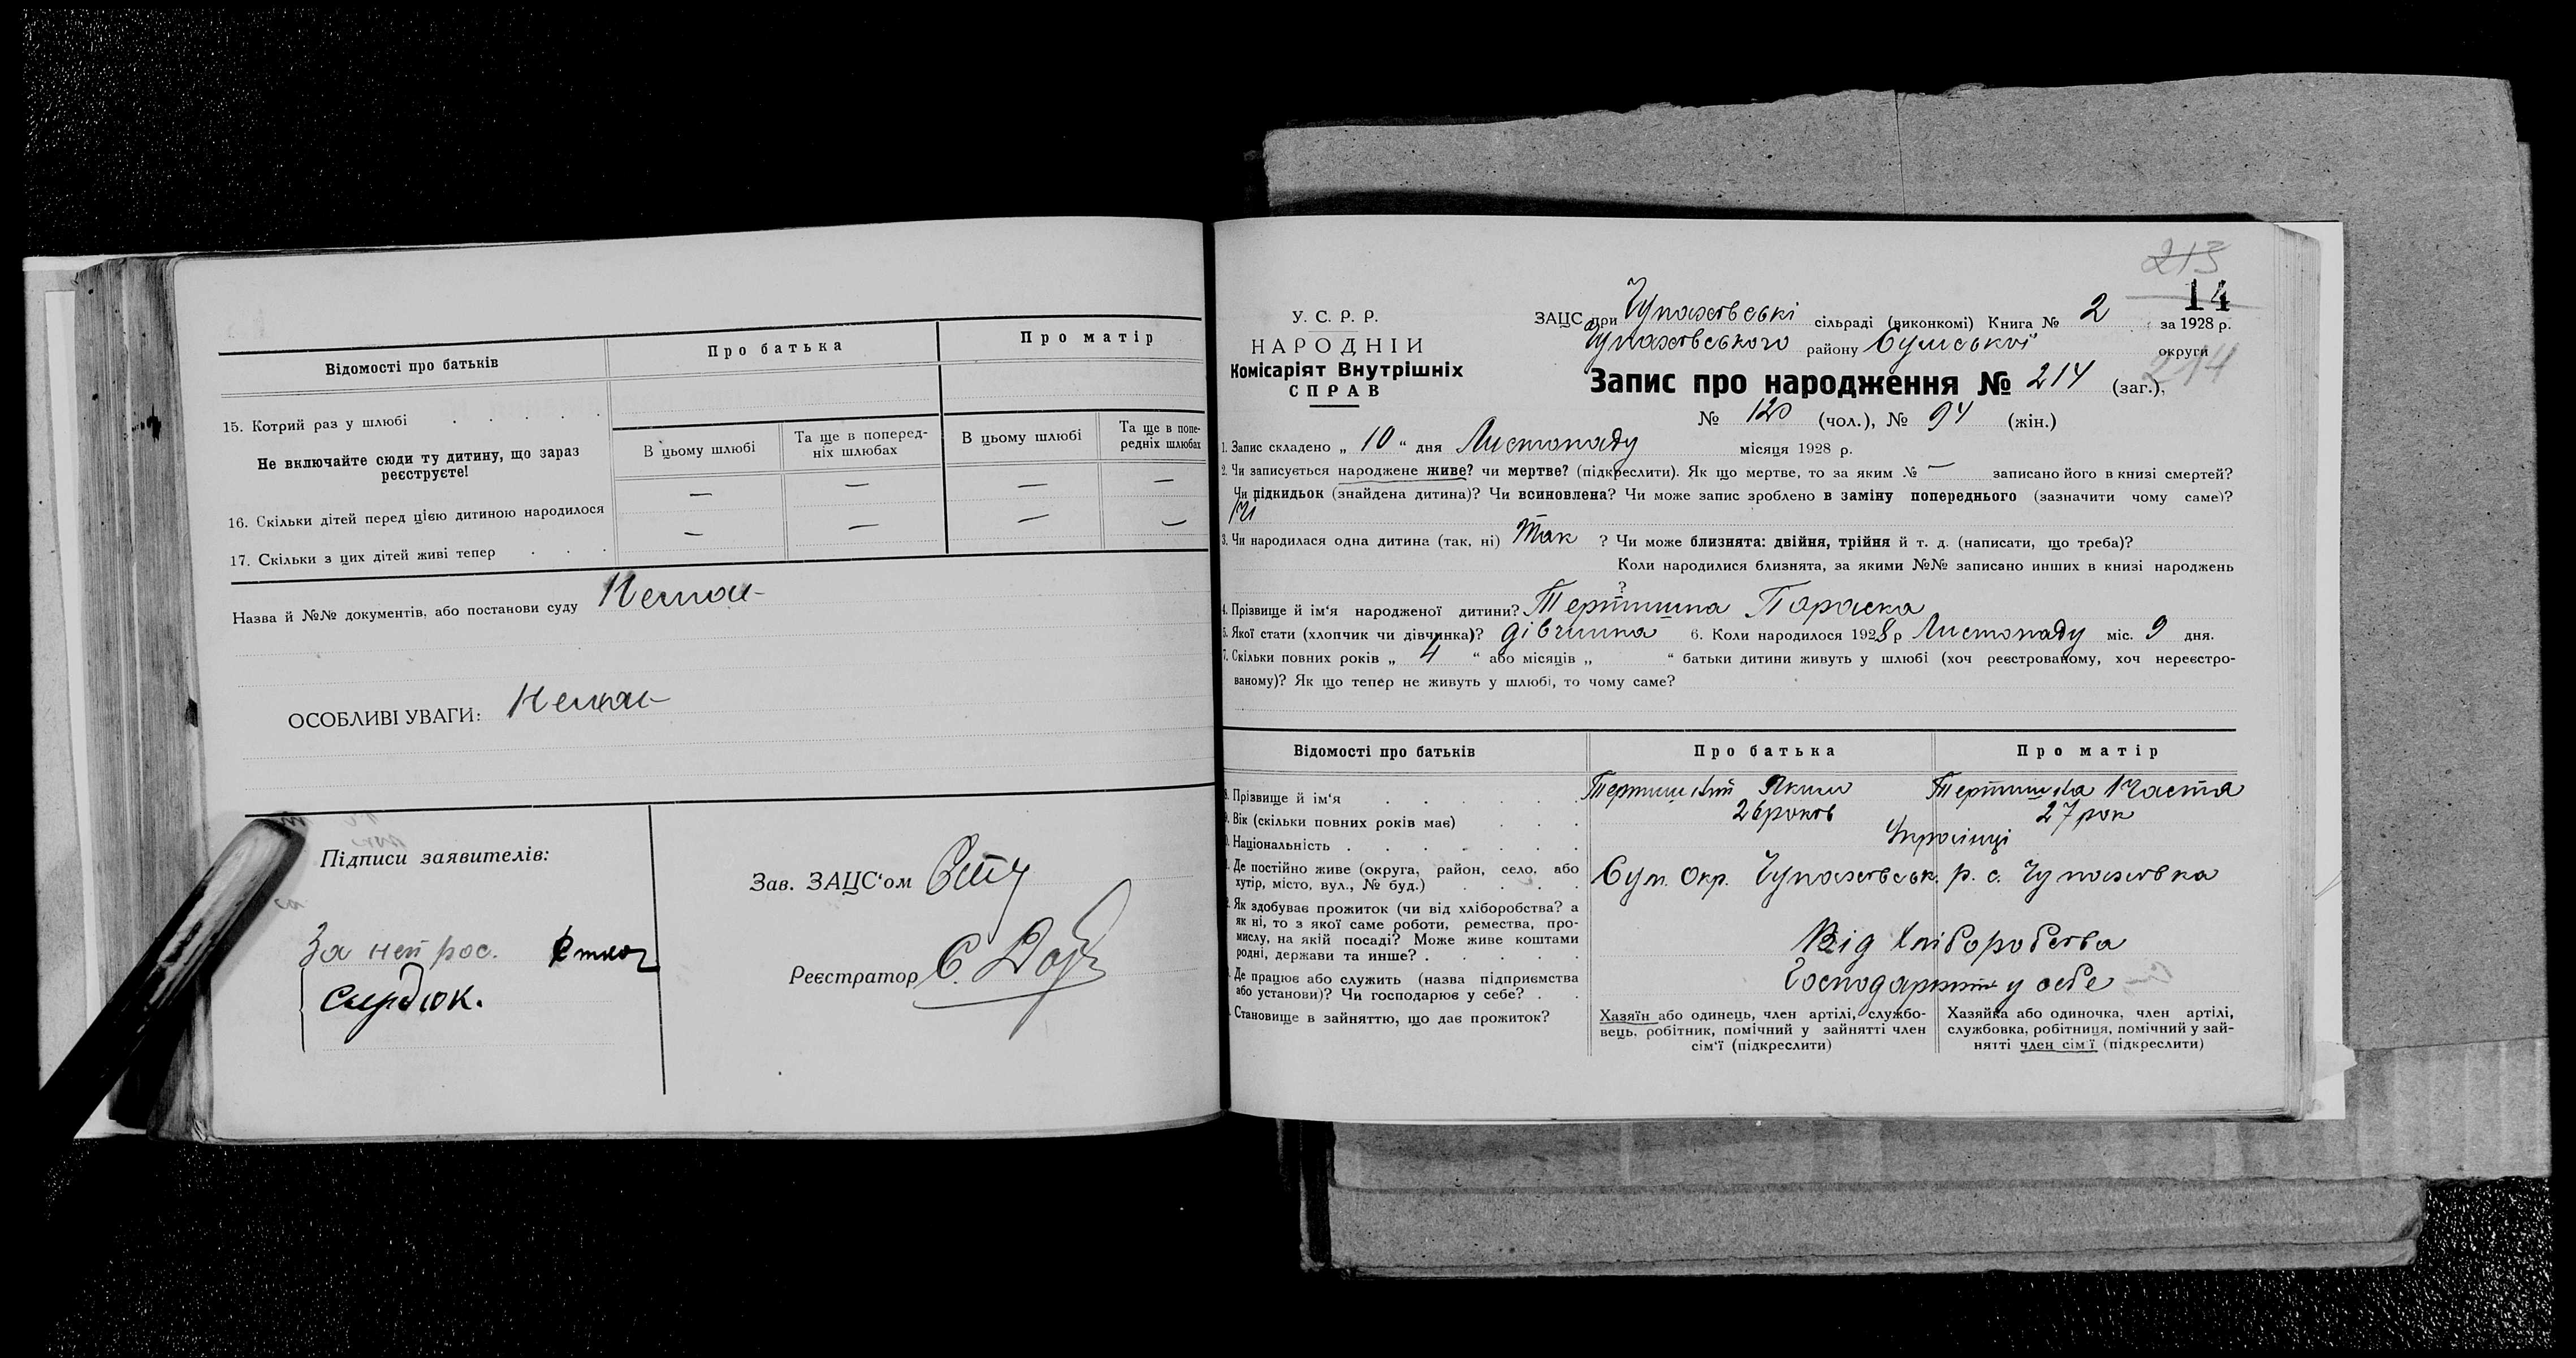 Відомості про батьків
Про батька
Про матір
15. Котрий раз у шлюбі . . . .
Не включайте сюди ту дитину, що зараз
реєструєте!
В цьому шлюбі
Та ще в поперед-
ніх шлюбах
В цьому шлюбі
Та ще в попе-
редніх шлюбах
16. Скільки дітей перед цією дитиною народилося — — — —
17. Скільки з цих дітей живі тепер . . . — — — —
Назва й №№ документів, або постанови суду Немає
ОСОБЛИВІ УВАГИ: Немає
Підписи заявителів:
За неп рос.
Сердюк.
Зав. ЗАЦС‘ом
Реєстратор
213
14
У. С. Р. Р.
НАРОДНІЙ
Комісаріят Внутрішніх
СПРАВ
ЗАЦС при Чупахівські сільраді (виконкомі) Книга № 2 за 1928 р.
Чупахівського району Сумської округи
214
Запис про народження № 214 (заг.),
№ 120 (чол.), № 94 (жін.)
1. Запис складено „ 10 “ дня Листопаду місяця 1928 р.
2. Чи записується народжене живе? чи мертве? (підкреслити). Як що мертве, то за яким № — записано його в книзі смертей?
Чи підкидьок (знайдена дитина)? Чи всиновлена? Чи може запис зроблено в заміну попереднього (зазначити чому саме)?
Ні
3. Чи народилася одна дитина (так, ні) Так ? Чи може близнята: двійня, трійня й т. д. (написати, що треба)?
Коли народилися близнята, за якими №№ записано инших в книзі народжень
?
4. Прізвище й ім‘я народженої дитини? Параска
5. Якої стати (хлопчик чи дівчинка)? дівчинка 6. Коли народилося 1928 р Листопаду міс. 9 дня.
7. Скільки повних років „ 4 “ або місяців „ “ батьки дитини живуть у шлюбі (хоч реєстрованому, хоч нереєстро-
ваному)? Як що тепер не живуть у шлюбі, то чому саме?
Відомості про батьків
Про батька
Про матір
8. Прізвище й ім‘я . . . . . Яким Настя
9. Вік (скільки повних років має) . . . 26 років 27 рок
10. Національність . . . . . . . Українці
11. Де постійно живе (округа, район, село, або
хутір, місто, вул., № буд.) . . . .
Сум. Окр. Чупахівськ. р. с. Чупахівка
12. Як здобуває прожиток (чи від хліборобства? а
як ні, то з якої саме роботи, ремества, про-
мислу, на якій посаді? Може живе коштами
родні, держави та инше? . . . . .
Від хліборобства
Де працює або служить (назва підприємства
або установи)? Чи господарює у себе? . .
у себе
Становище в зайняттю, що дає прожиток?
Хазяїн або одинець, член артілі, службо-
вець, робітник, помічний у зайнятті член
сім‘ї (підкреслити)
Хазяйка або одиночка, член артілі,
службовка, робітниця, помічний у зай-
нятті член сім‘ї (підкреслити)